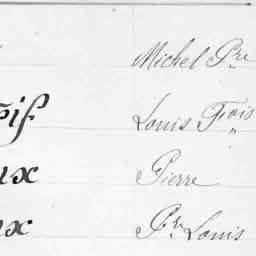 Michel Pre
if Louis Fois
ux Pierre
ux Pre Louis